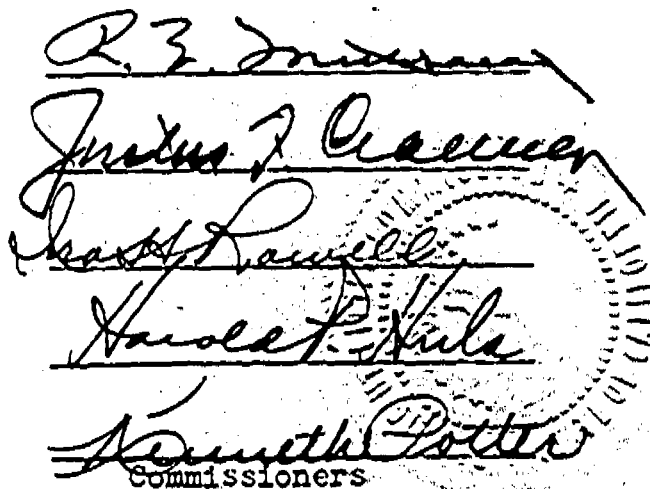 R. E. Mittelstaedt
Justus F. Craemer
Ira H. Rowell
Harold P. Huls
Kenneth Potter
Commissioners